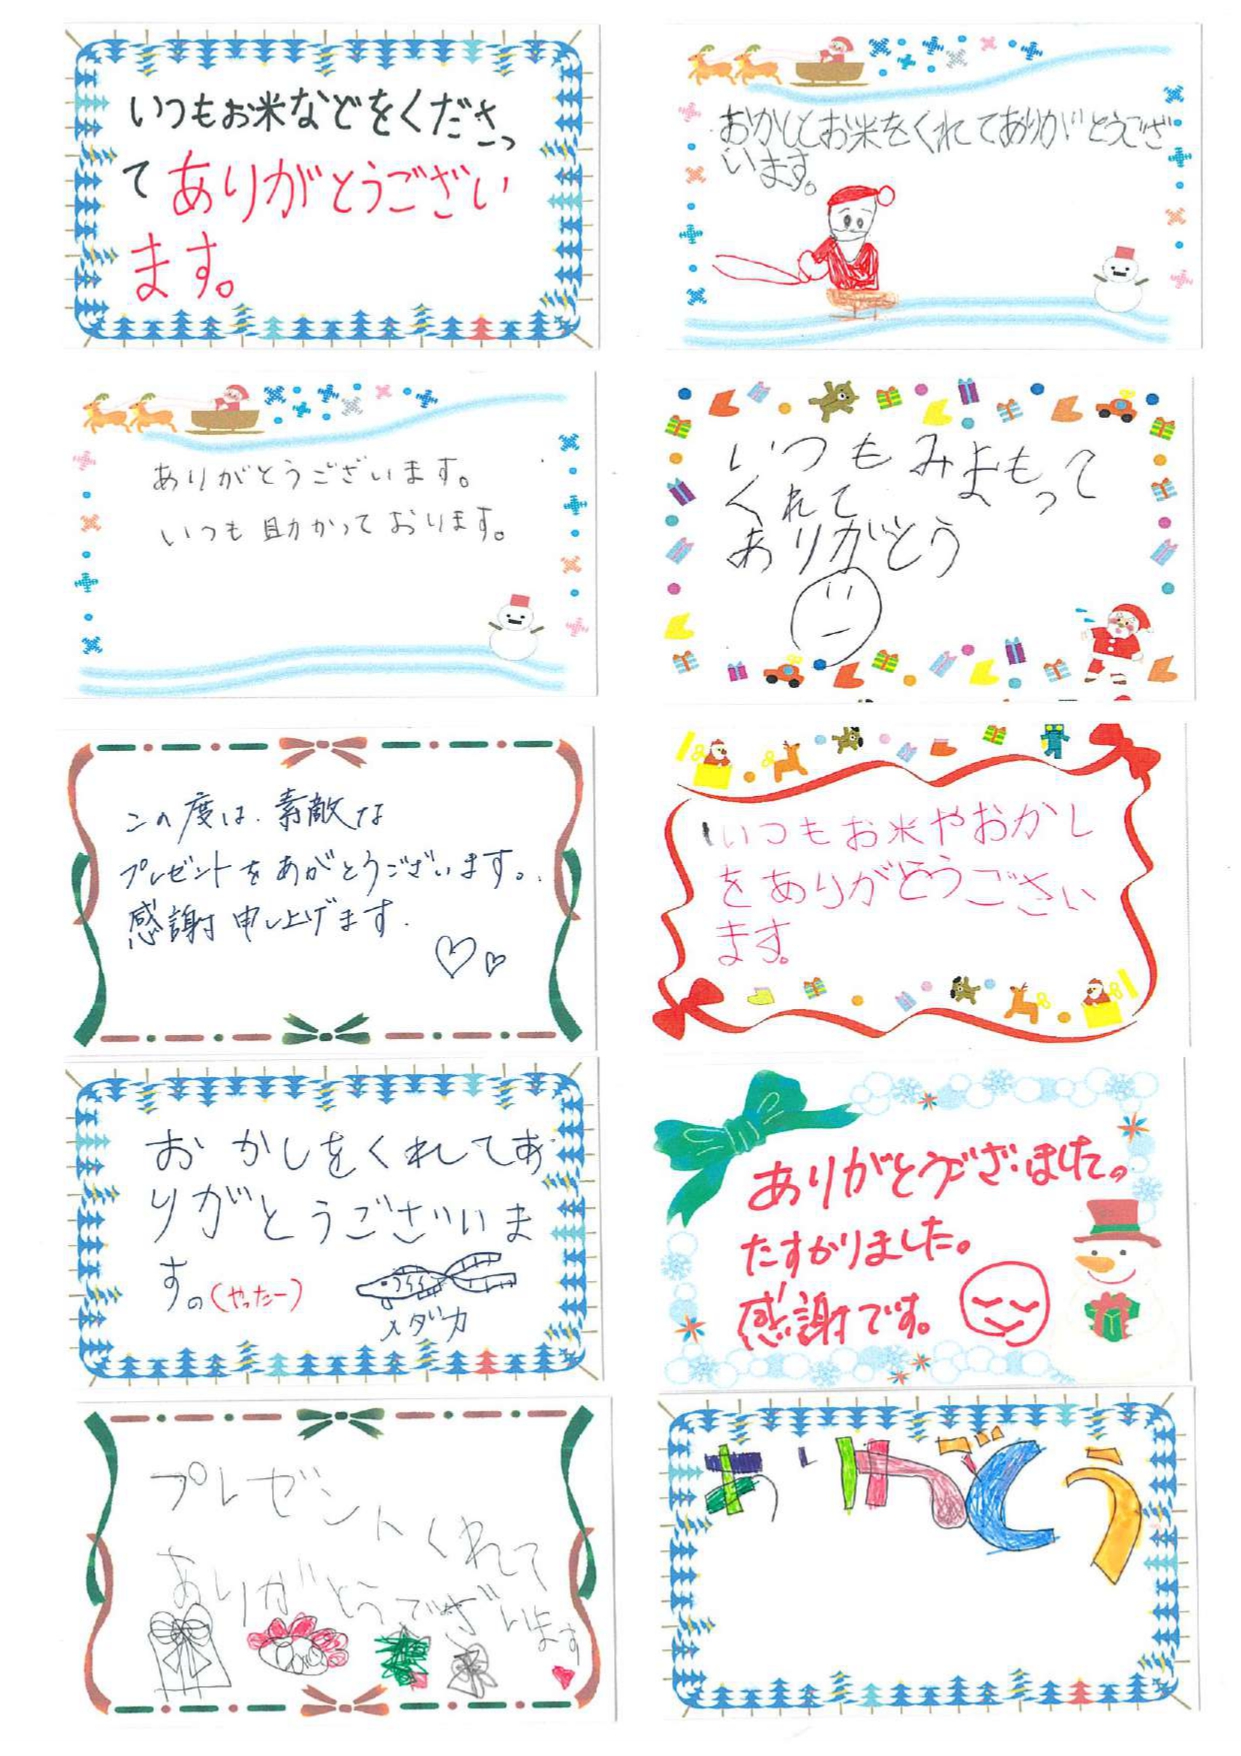 いつもお米などをくださっ
てありがとうござい
ます。
おかしとお米をくれてありがとうござ
います。
ありがとうございます。
いつも助かっております。
いつもみよもって
くれて
ありがとう
この度は、素敵な
プレゼントをあがとうございます。
感謝申し上げます。
いつもお米やおかし
をありがとうござい
ます。
おかしをくれてあ
りがとうございま
す。(やったー)
メダカ
ありがとうございました。
たすかりました。
感謝です。
プレゼントくれて
ありがとうございます
ありがとう